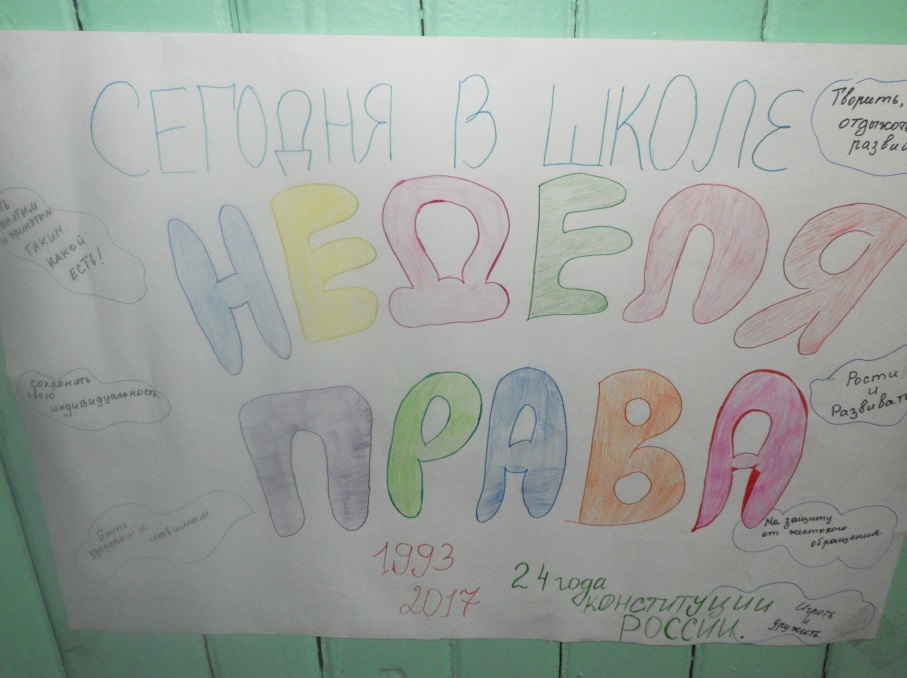 СЕГОДНЯ В ШКОЛЕ
НЕДЕЛЯ
ПРАВА
1993
2017
24 года
КОНСТИТУЦИИ
РОССИИ.
Творить,
отдыхать
развив
ТАКИМ
КАКОЙ
ЕСТЬ!
сохранять
свою
индивидуальность
Быть
здоровым и любимым
Рости
и
Развивать
На защиту
от жестокого
обращения
Играть
и
дружить